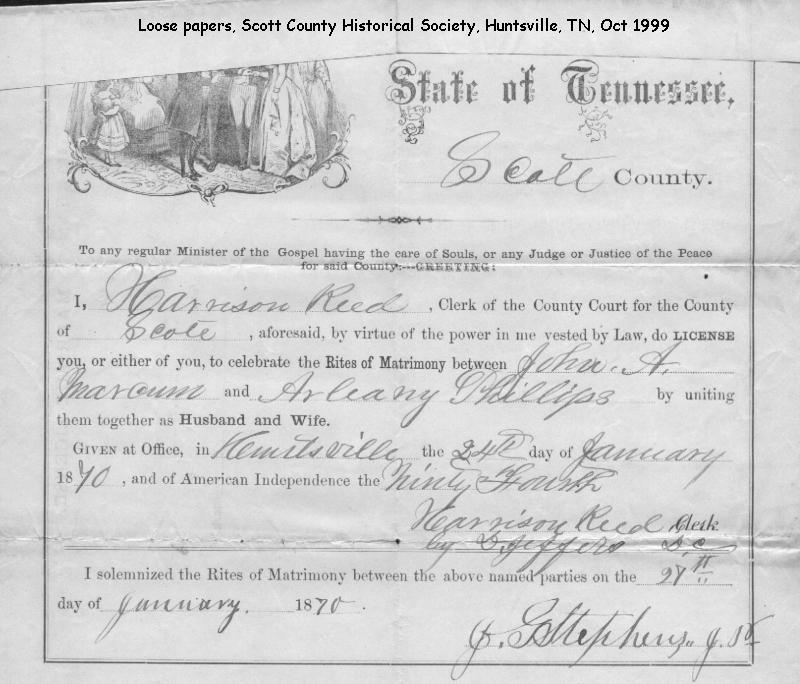 Loose papers, Scott County Historical Society, Huntsville, TN, Oct 1999
State of Tennessee,
Scott County.
To any regular Minister of the Gospel having the care of Souls, or any Judge or Justice of the Peace
for said County:---GREETING:
I, Harrison Reed, Clerk of the County Court for the County
of Scott, aforesaid, by virtue of the power in me vested by Law, do LICENSE
you, or either of you, to celebrate the Rites of Matrimony between John. A.
Marcum and Arleany Phillips by uniting
them together as Husband and Wife.
GIVEN at Office, in Huntsville the 24th day of January
1870, and of American Independence the Ninty Fourth
Harrison Reed Clerk
by D. Jeffers D.C
I solemnized the Rites of Matrimony between the above named parties on the 27th
day of January. 1870.
J. S Stephens, J. P